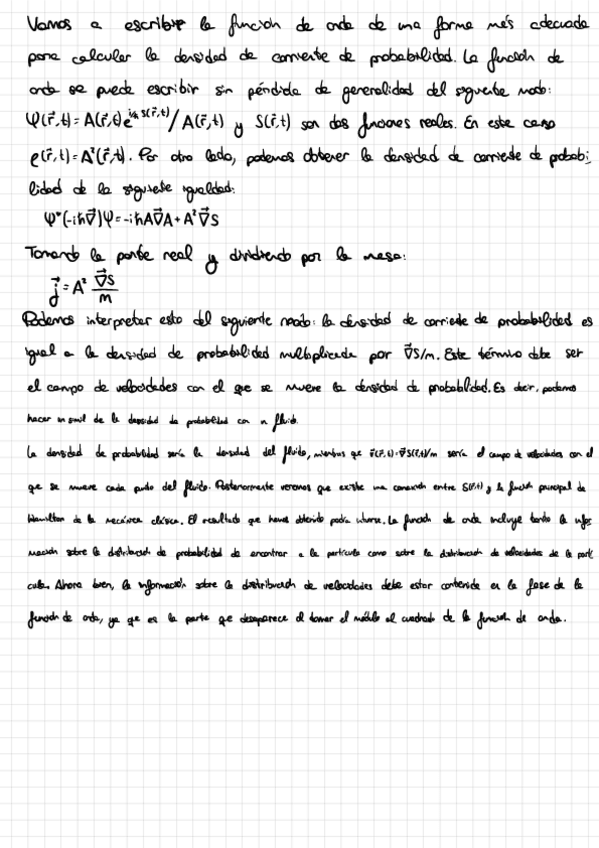 Vamos a escribir la función de onda de una forma más adecuada
para calcular la densidad de corriente de probabilidad. La función de
onda se puede escribir sin pérdida de generalidad del siguiente modo:
Ψ(r⃗,t)=A(r⃗,t)e^{i/ħ S(r⃗,t)}/A(r⃗,t) y S(r⃗,t) son dos funciones reales. En este caso
ρ(r⃗,t)=A²(r⃗,t). Por otro lado, podemos obtener la densidad de corriente de probabi
lidad de la siguiente igualdad:
Ψ*(-iħ∇⃗)Ψ=-iħA∇⃗A+A²∇⃗S
Tomando la parte real y dividiendo por la masa:
j⃗=A² ∇⃗S/m
Podemos interpretar esto del siguiente modo: la densidad de corriente de probabilidad es
igual a la densidad de probabilidad multiplicada por ∇⃗S/m. Este término debe ser
el campo de velocidades con el que se mueve la densidad de probabilidad. Es decir, podemos
hacer un símil de la densidad de probabilidad con un fluido.
La densidad de probabilidad sería la densidad del fluido, mientras que v⃗(r⃗,t)=∇⃗S(r⃗,t)/m sería el campo de velocidades con el
que se mueve cada punto del fluido. Posteriormente veremos que existe una conexión entre S(r⃗,t) y la función principal de
Hamilton de la mecánica clásica. El resultado que hemos obtenido podía intuirse. La función de onda incluye tanto la infor
mación sobre la distribución de probabilidad de encontrar a la partícula como sobre la distribución de velocidades de la partí
cula. Ahora bien, la información sobre la distribución de velocidades debe estar contenida en la fase de la
función de onda, ya que es la parte que desaparece al tomar el módulo al cuadrado de la función de onda.